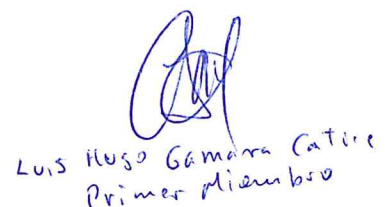 Luis Hugo Gamarra
Primer Miembro